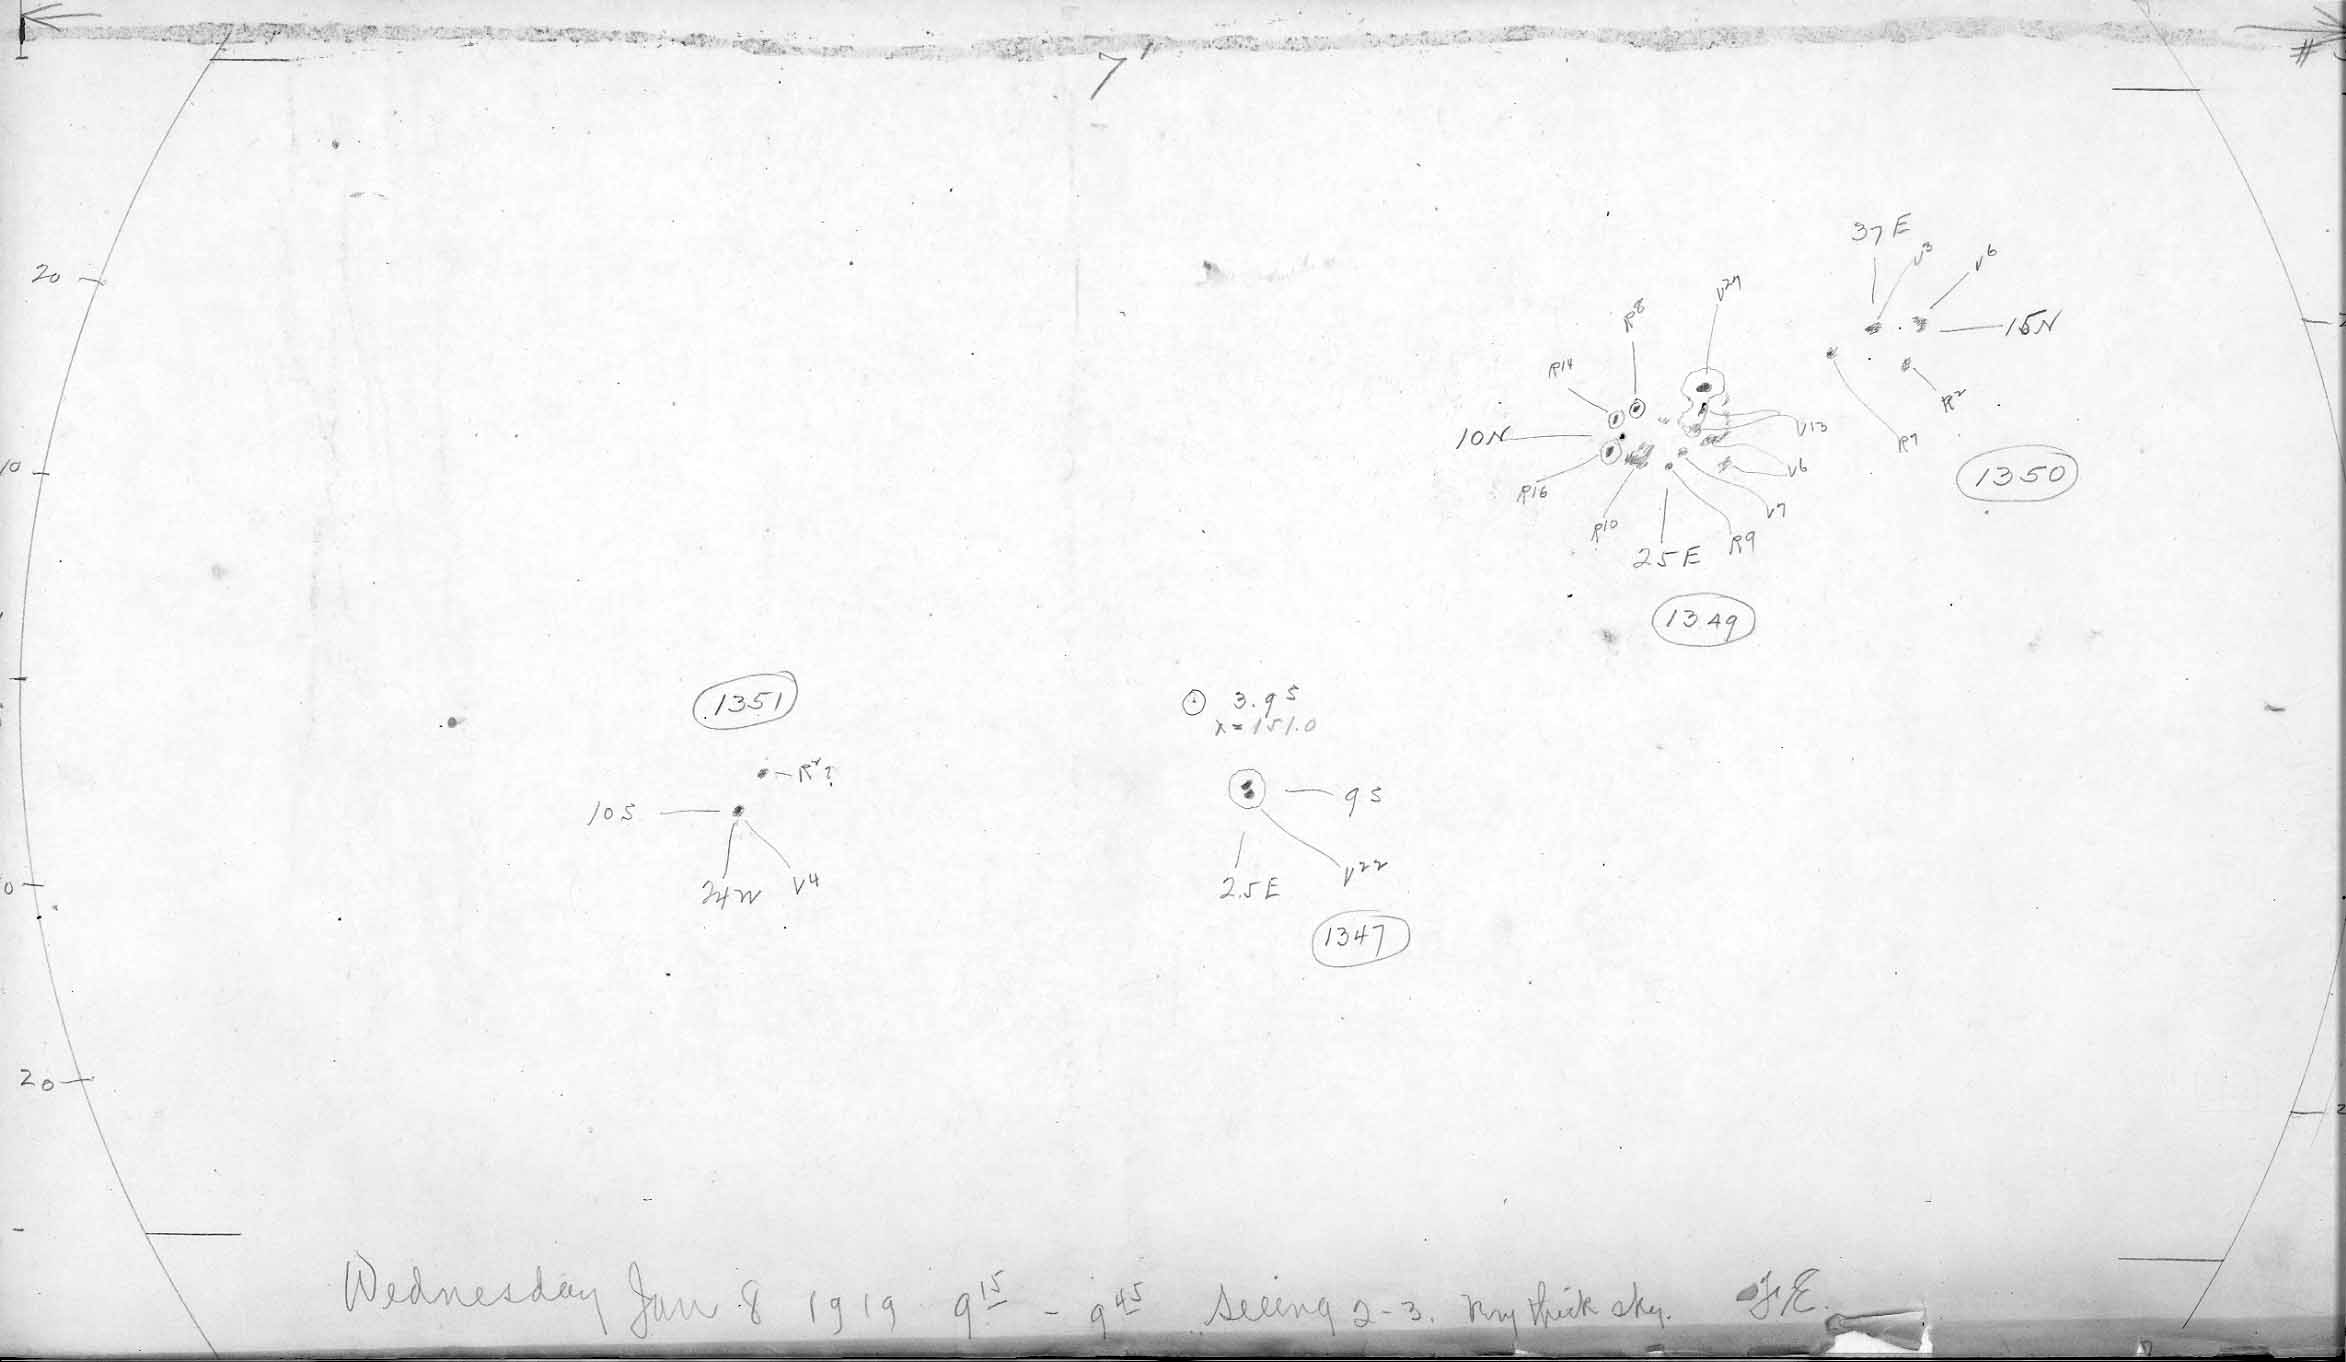 7'
37 E
V3
V6
20
V29
R8
15N
R14
R2
V13
10N
R7
10
V6
1350
R16
V7
R10
R9
25E
1349
1351
3.9S
λ=151.0
R2?
9S
10S
V22
24W
V4
2.5E
0
1347
20
Wednesday Jan 8 1919 9 15 - 9 45 Seeing 2-3. Very thick sky. F.E.